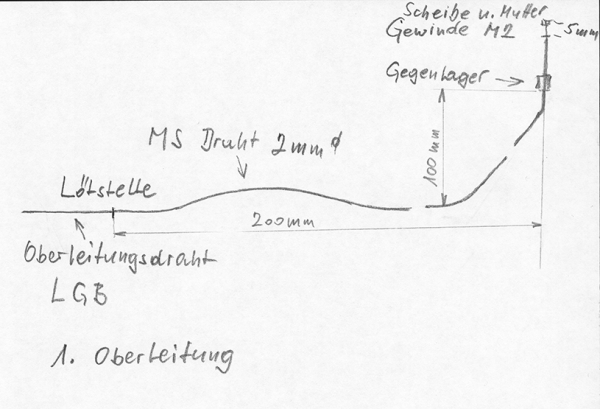 Scheibe u. Mutter
Gewinde M2
5mm
Gegenlager
100mm
MS Draht 2mm ϕ
Lötstelle
200mm
Oberleitungsdraht
LGB
1. Oberleitung